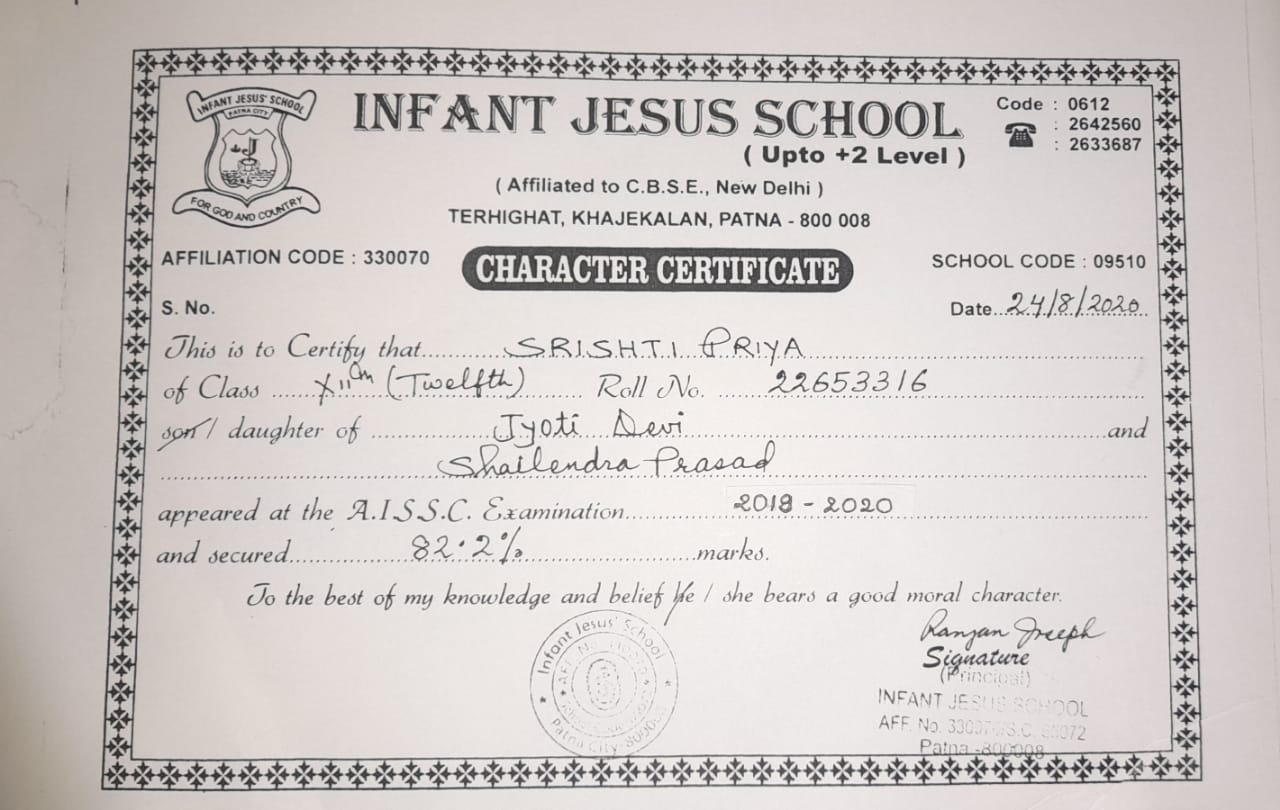 INFANT JESUS' SCHOOL
PATNA CITY
FOR GOD AND COUNTRY
INFANT JESUS SCHOOL
( Upto +2 Level )
Code : 0612
: 2642560
: 2633687
( Affiliated to C.B.S.E., New Delhi )
TERHIGHAT, KHAJEKALAN, PATNA - 800 008
AFFILIATION CODE : 330070
CHARACTER CERTIFICATE
SCHOOL CODE : 09510
S. No.
Date 24/8/2020
This is to Certify that SRISHTI PRIYA
of Class XIIth (Twelfth) Roll No. 22653316
son / daughter of Jyoti Devi and
Shailendra Prasad
appeared at the A.I.S.S.C. Examination 2018 - 2020
and secured 82.2% marks.
To the best of my knowledge and belief he / she bears a good moral character.
Infant Jesus' School
Patna City-800008
Ranjan Joseph
Signature
(Principal)
INFANT JESUS SCHOOL
AFF. No. 330070/S.C.
Patna -800008